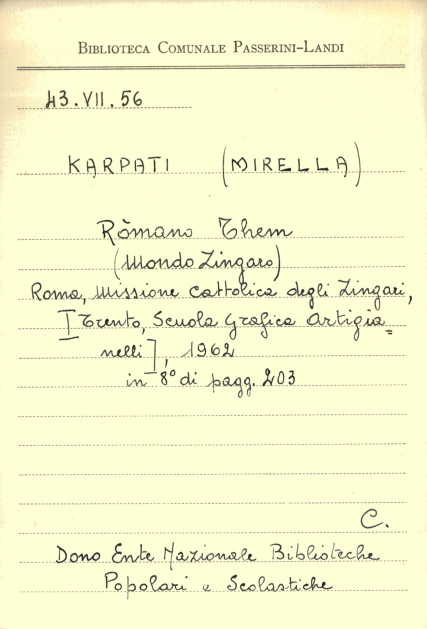 BIBLIOTECA COMUNALE PASSERINI-LANDI
43.VII.56
KARPATI (MIRELLA)
Ròmano Them
(Mondo Zingaro)
Roma, Missione Cattolica degli Zingari,
[Trento, Scuola Grafica Artigia=
nelli], 1962
in 8° di pagg. 203
C.
Dono Ente Nazionale Biblioteche
Popolari e Scolastiche